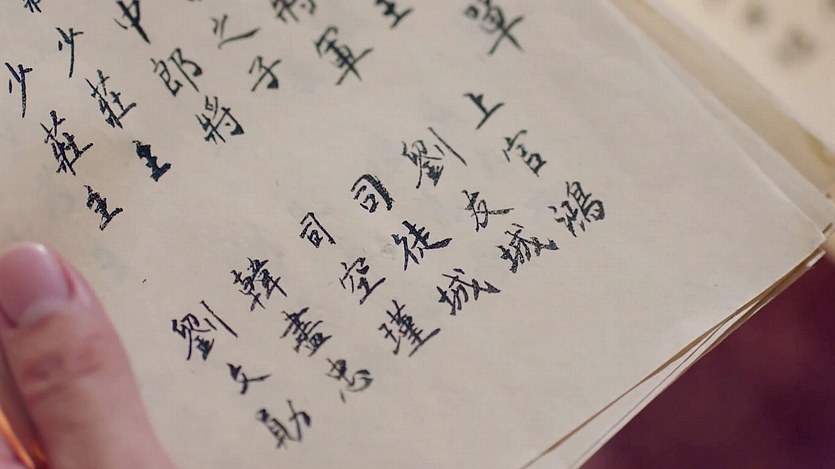 單
主
將軍
之子
中郎將
少莊主
少莊主
上官鴻
劉友城
司徒城
司空瑾
韓盡忠
劉文勛